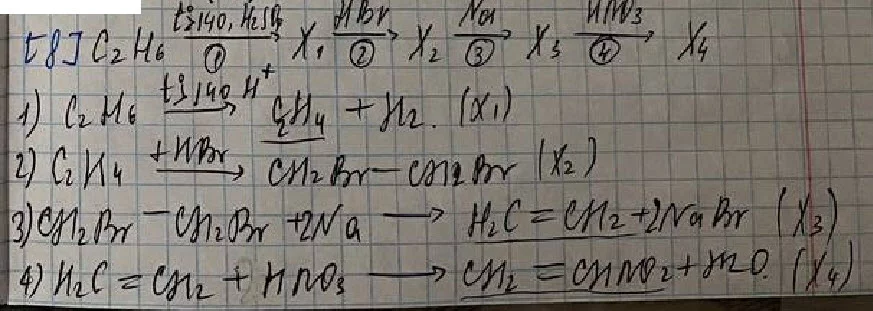 [8] C₂H₆ t>140, H₂SO₄ → ① X₁ HBr → ② X₂ Na → ③ X₃ HNO₃ → ④ X₄
1) C₂H₆ t>140 H⁺ → C₂H₄ + H₂. (X₁)
2) C₂H₄ +HBr → CH₂Br–CH₂Br (X₂)
3) CH₂Br–CH₂Br +2Na → H₂C=CH₂+2NaBr (X₃)
4) H₂C=CH₂ + HNO₃ → CH₂=CHNO₂+H₂O. (X₄)